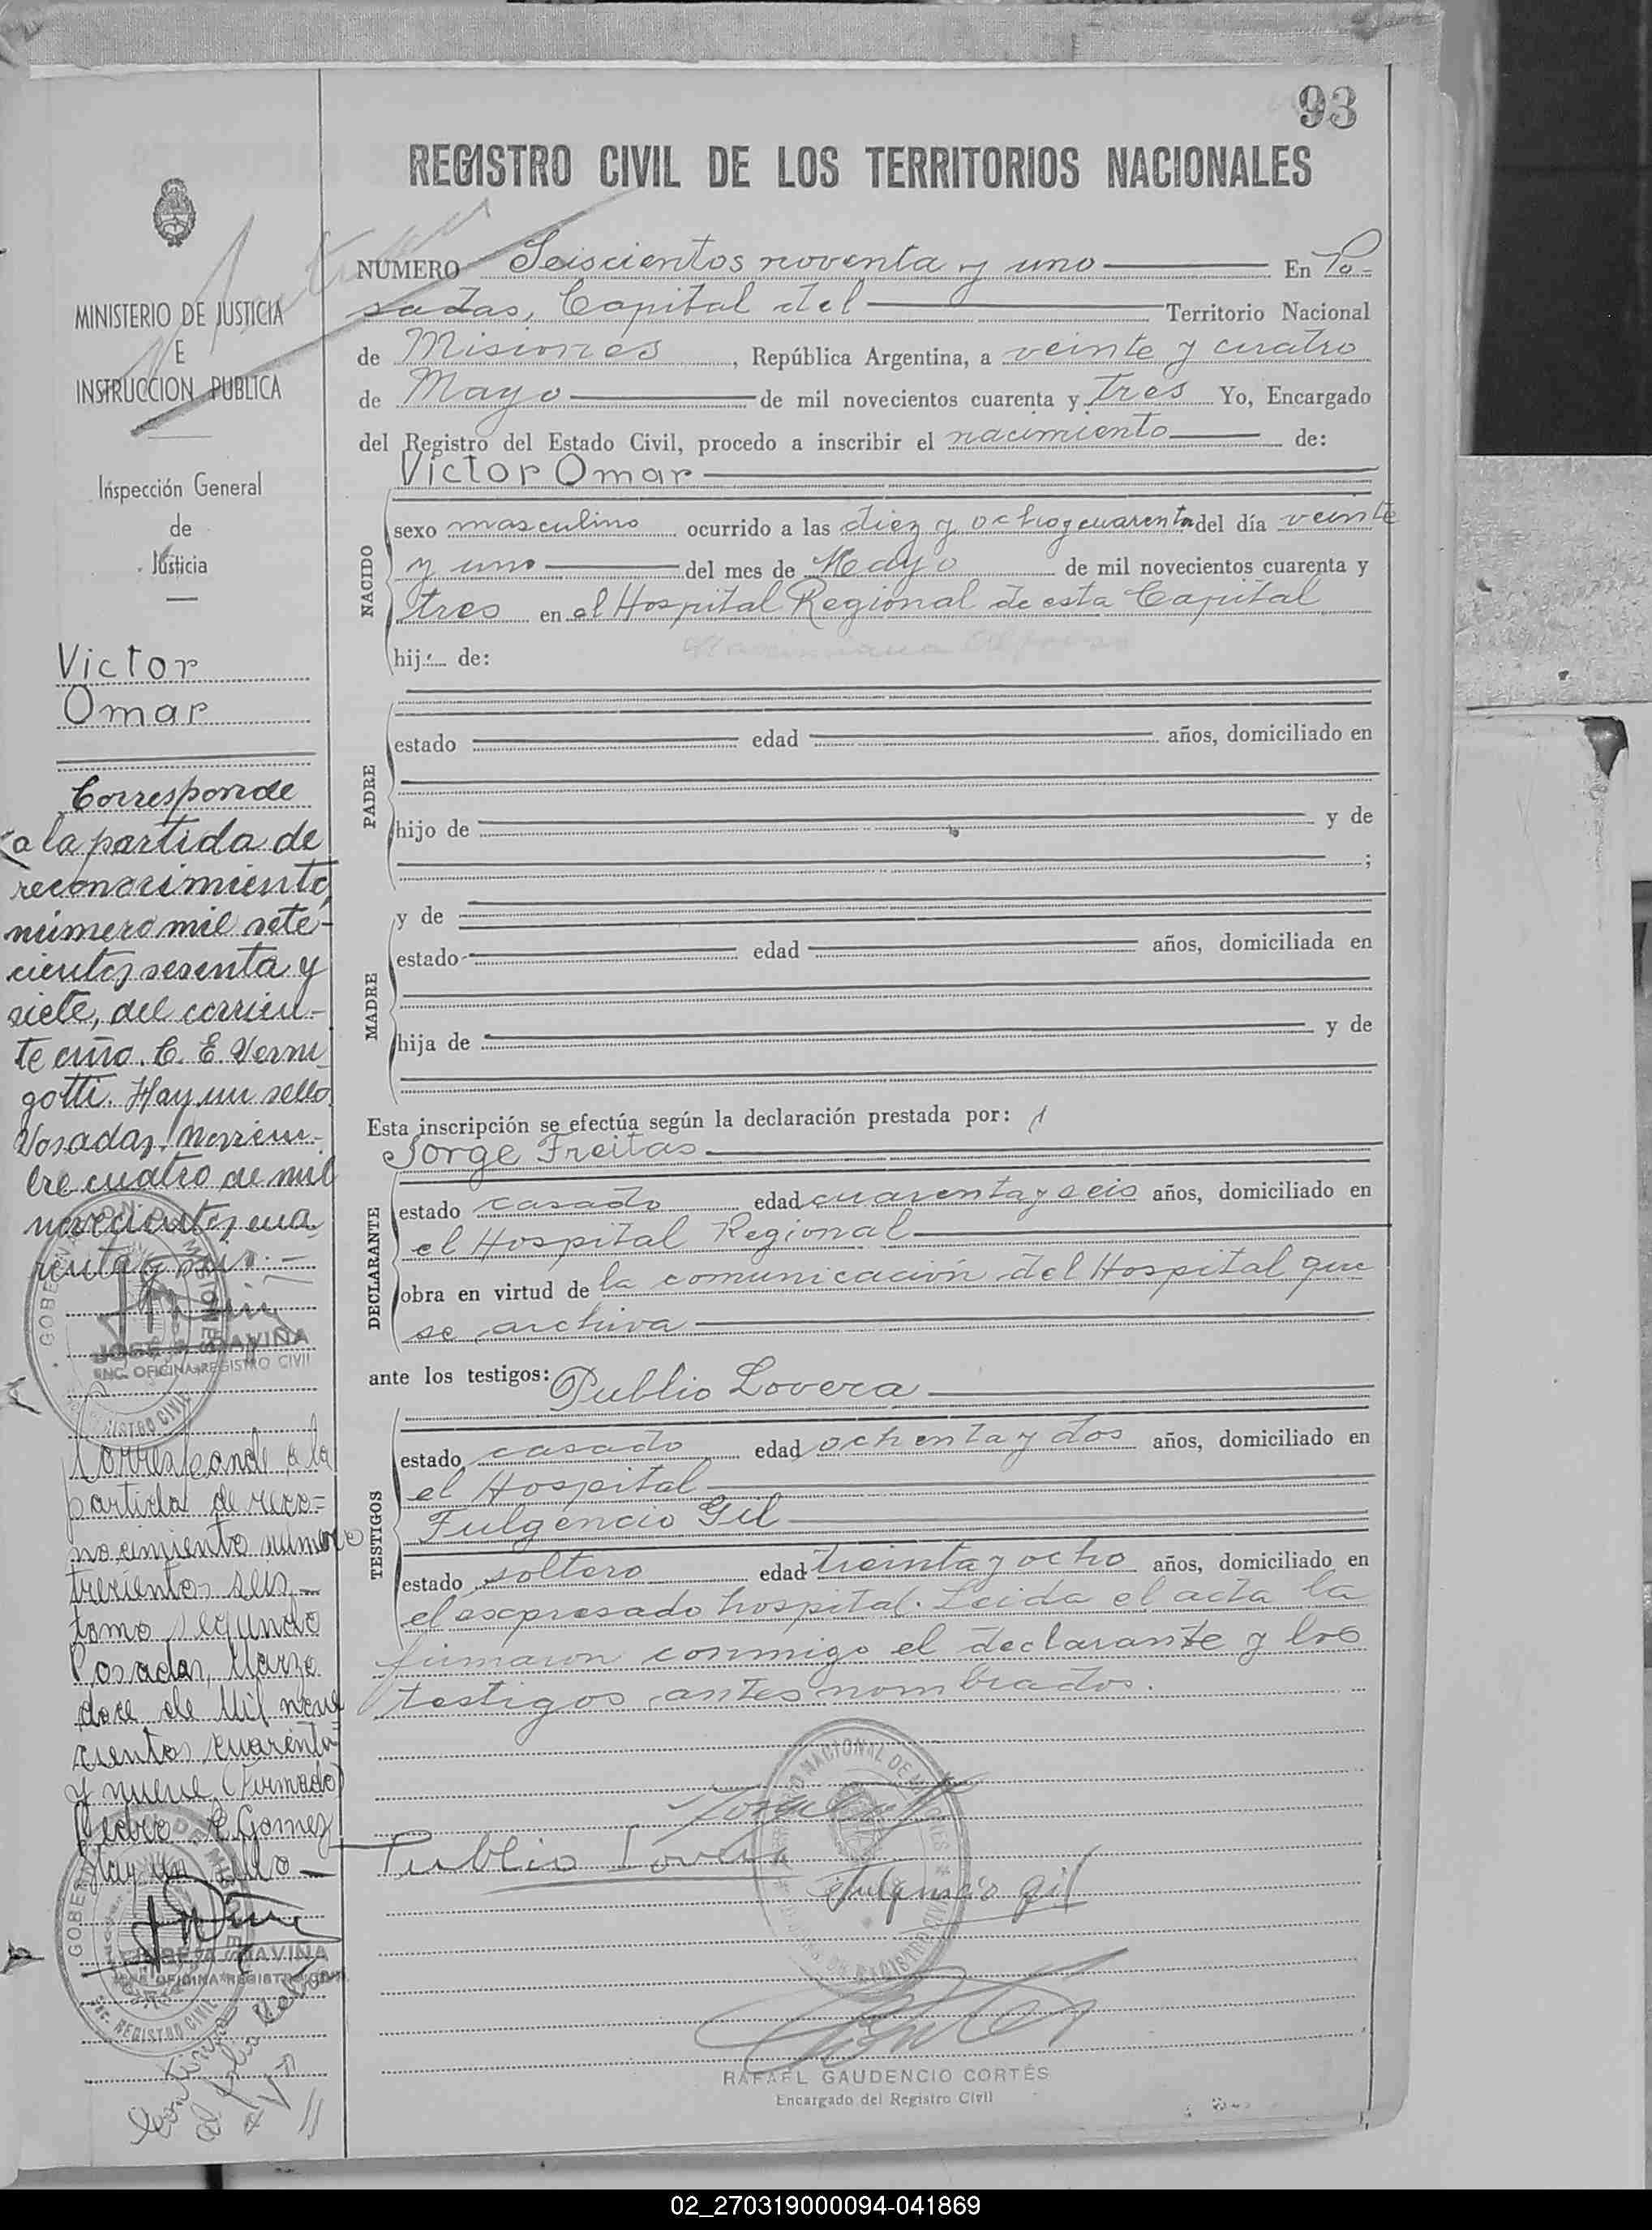 93
REGISTRO CIVIL DE LOS TERRITORIOS NACIONALES
MINISTERIO DE JUSTICIA
E
INSTRUCCION PUBLICA
Inspección General
de
Justicia
Victor
Omar
Corresponde
a la partida de
reconocimiento,
número mil sete-
cientos sesenta y
siete, del corrien-
te año. C. E. Verni
gotti. Hay un sello.
Posadas, Noviem-
bre cuatro de mil
novecientos cua
renta y
GOBERNACION MISIONES
JOSE A. RAVIÑA
ENC. OFICINA REGISTRO CIVIL
REGISTRO CIVIL
Corresponde a la
partida de reco=
nocimiento numero
trecientos seis
tomo segundo
Posadas, Marzo
doce de Mil nove
cientos cuarenta
y nueve (Firmado)
Pedro E. Gomez
Hay un sello
RAVIÑA
OFICINA REGISTRO CIVIL
REGISTRO CIVIL
Continua
al folio
NUMERO Seiscientos noventa y uno En Po-
sadas, Capital del Territorio Nacional
de Misiones, República Argentina, a veinte y cuatro
de Mayo de mil novecientos cuarenta y tres Yo, Encargado
del Registro del Estado Civil, procedo a inscribir el nacimiento de:
Victor Omar
NACIDO
sexo masculino ocurrido a las diez y ocho y cuarenta del día veinte
y uno del mes de Mayo de mil novecientos cuarenta y
tres en el Hospital Regional de esta Capital
hij de:
PADRE
estado edad años, domiciliado en
hijo de y de
;
MADRE
y de
estado edad años, domiciliada en
hija de y de
Esta inscripción se efectúa según la declaración prestada por:
Jorge Freitas
DECLARANTE
estado casado edad cuarenta y seis años, domiciliado en
el Hospital Regional
obra en virtud de la comunicación del Hospital que
se archiva
ante los testigos: Publio Lovera
TESTIGOS
estado casado edad ochenta y dos años, domiciliado en
el Hospital
Fulgencio Gil
estado soltero edad treinta y ocho años, domiciliado en
el expresado hospital. Leida el acta la
firmaron conmigo el declarante y los
testigos antes nombrados.
Publio Lovera
Fulgencio gil
RAFAEL GAUDENCIO CORTÉS
Encargado del Registro Civil
02_270319000094-041869